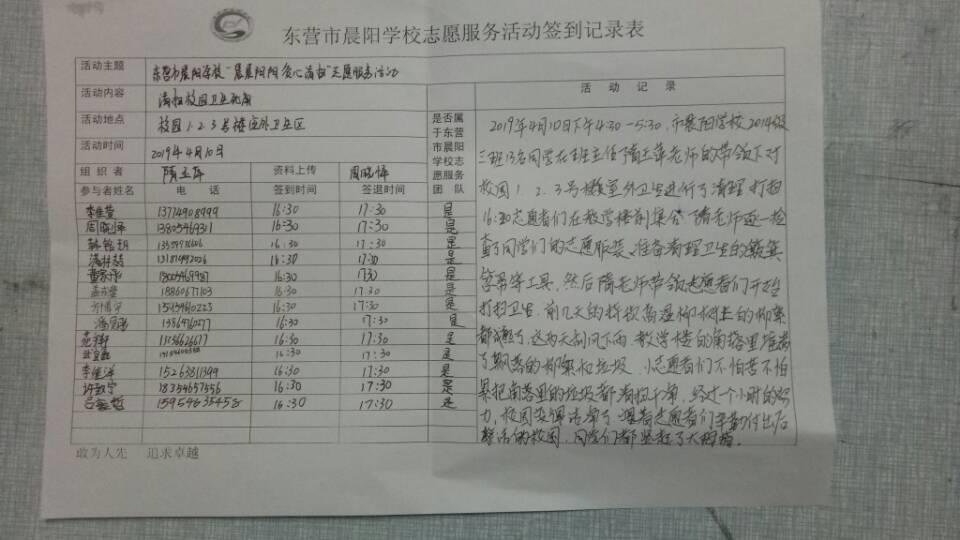 东营市晨阳学校志愿服务活动签到记录表
活动主题 东营市晨阳学校"晨晨阳阳爱心清扫"志愿服务活动
活动内容 清扫校园卫生死角
活动地点 校园1.2.3号楼室外卫生区
活动时间 2019年4月10日
组织者 隋玉萍 资料上传 周晓烨
参与者姓名 电话 签到时间 签退时间
是否属于东营市晨阳学校志愿服务团队
李佳萱 13774908999 16:30 17:30 是
周晓烨 16:30 17:30 是
16:30 17:30 是
16:30 17:30 是
16:30 17:30 是
孟亦萱 18860677103 16:30 17:30 是
16:30 17:30 是
16:30 17:30 是
16:30 17:30 是
16:30 17:30 是
李佳洋 15263811399 16:30 17:30 是
许致宁 18354657556 16:30 17:30 是
吕鑫哲 15954635458 16:30 17:30 是
活动记录
2019年4月10日下午4:30-5:30,市晨阳学校2014级
三班13名同学在班主任隋玉萍老师的带领下对
校园1.2.3号楼室外卫生进行了清理打扫
16:30志愿者们在教学楼前集合,隋老师逐一检
查了同学们的志愿服装、准备清理卫生的簸箕
笤帚等工具,然后隋老师带领志愿者们开始
打扫卫生,前几天的持续高温柳树上的柳絮
都成熟了,这两天刮风下雨,教学楼的角落里堆满
了飘落的柳絮和垃圾,志愿者们不怕苦不怕
累把角落里的垃圾都清扫干净,经过一个小时的努
力,校园变得洁净了,望着志愿者们辛勤付出后
整洁的校园,同学们都竖起了大拇指。
敢为人先 追求卓越